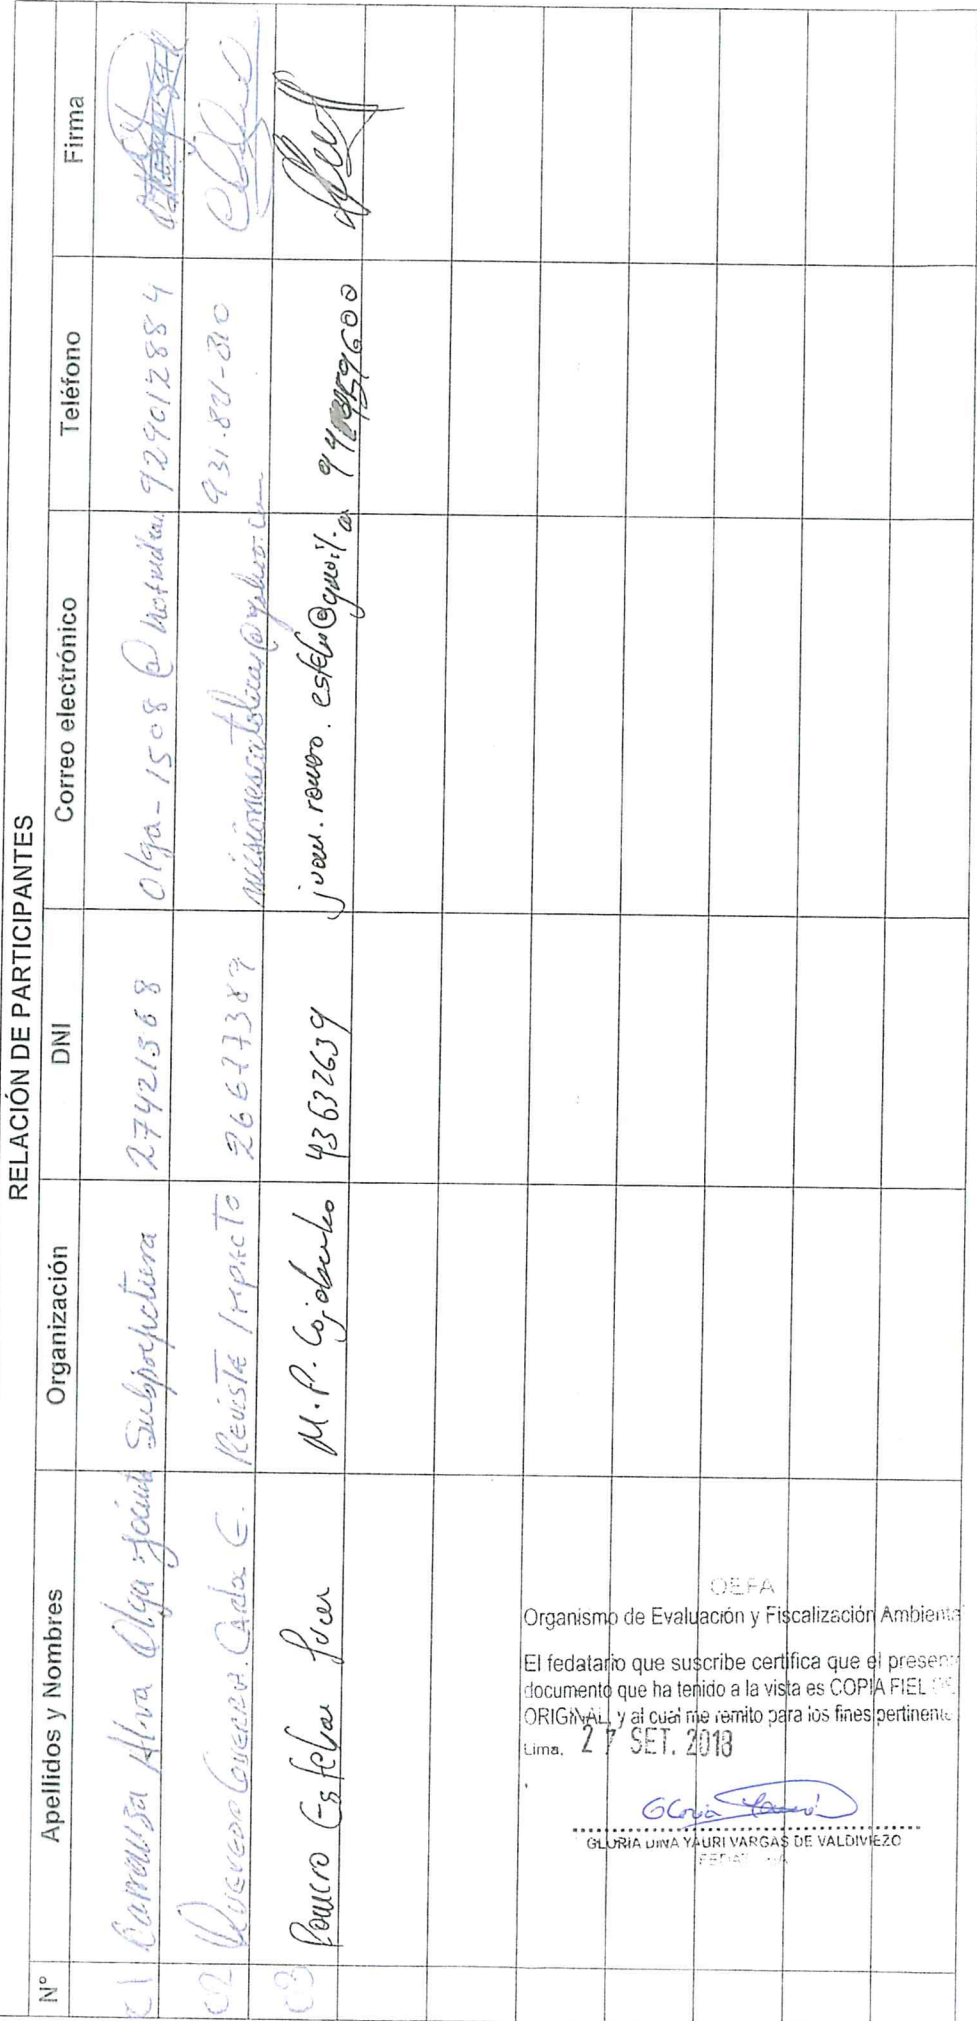 RELACIÓN DE PARTICIPANTES
N° Apellidos y Nombres Organización DNI Correo electrónico Teléfono Firma
01 Carranza Alva Olga Subprefectura 27421568 Olga-1508@ 929012884
02 Carlos E. Revista IMPACTO 26677389 931-821-310
03 Romero Esteban Juan M.P. Cajabamba 43632639 juan.romero.
OEFA
Organismo de Evaluación y Fiscalización Ambiental
El fedatario que suscribe certifica que el presen
documento que ha tenido a la vista es COPIA FIEL DE
ORIGINAL y al cual me remito para los fines pertinente
Lima, 27 SET. 2018
GLORIA DINA YAURI VARGAS DE VALDIVIEZO
FEDATARIA